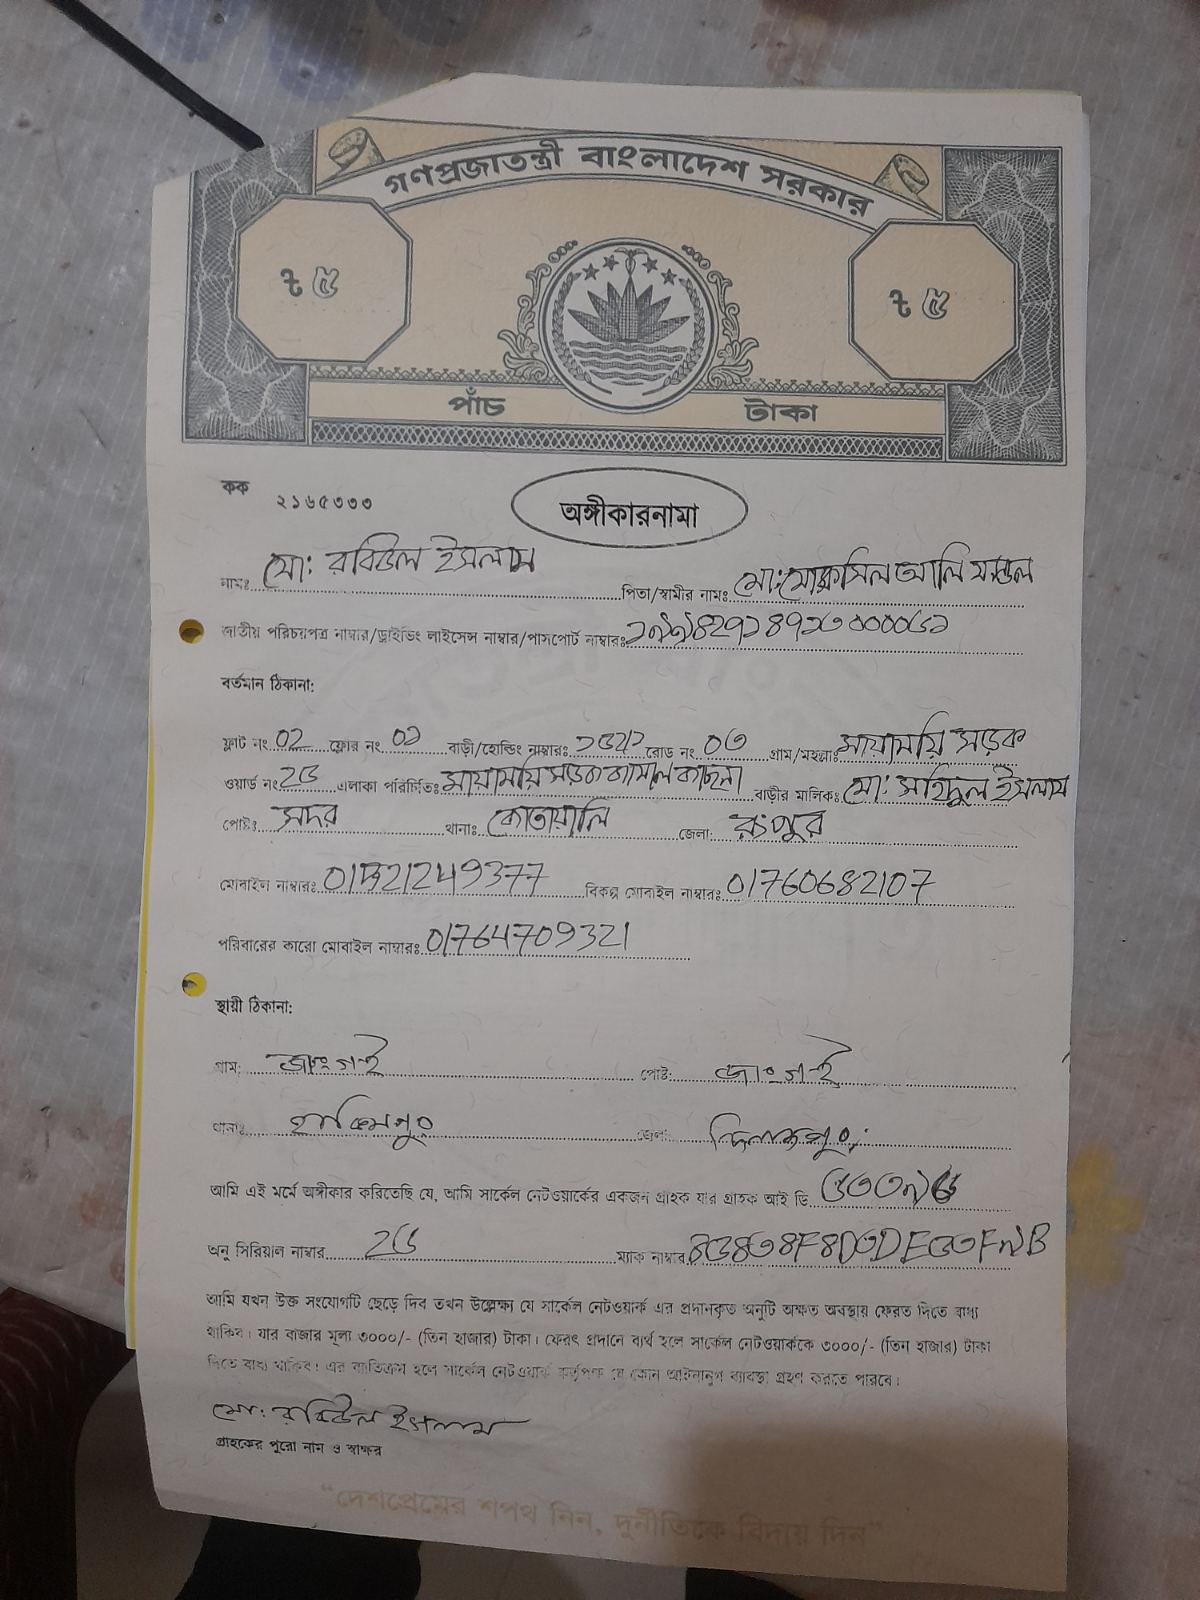 গণপ্রজাতন্ত্রী বাংলাদেশ সরকার
৳ ৫ ৳ ৫
পাঁচ টাকা
কক ২১৬৫৩৩৩
অঙ্গীকারনামা
নামঃ মো: রবিউল ইসলাম পিতা/স্বামীর নামঃ মো: আলি মন্ডল
জাতীয় পরিচয়পত্র নাম্বার/ড্রাইভিং লাইসেন্স নাম্বার/পাসপোর্ট নাম্বারঃ
বর্তমান ঠিকানা:
ফ্লাট নং 02 ফ্লোর নং ০১ বাড়ী/হোল্ডিং নাম্বারঃ রোড নং ০৩ গ্রাম/মহল্লাঃ মায়াময়ি সড়ক
ওয়ার্ড নং এলাকা পরিচিতিঃ মায়াময়ি সড়ক কামাল কাছনা বাড়ীর মালিকঃ মো: সহিদুল ইসলাম
পোষ্টঃ সদর থানাঃ কোতায়ালি জেলা: রংপুর
মোবাইল নাম্বারঃ বিকল্প মোবাইল নাম্বারঃ 01760682107
পরিবারের কারো মোবাইল নাম্বারঃ 01764709321
স্থায়ী ঠিকানা:
গ্রাম: জাংগই পোষ্ট: জাংগই
থানাঃ হাকিমপুর জেলা: দিনাজপুর
আমি এই মর্মে অঙ্গীকার করিতেছি যে, আমি সার্কেল নেটওয়ার্কের একজন গ্রাহক যার গ্রাহক আই ডি
অনু সিরিয়াল নাম্বার ম্যাক নাম্বার
আমি যখন উক্ত সংযোগটি ছেড়ে দিব তখন উল্লেক্ষ্য যে সার্কেল নেটওয়ার্ক এর প্রদানকৃত অনুটি অক্ষত অবস্থায় ফেরত দিতে বাধ্য
থাকিব। যার বাজার মূল্য ৩০০০/- (তিন হাজার) টাকা। ফেরৎ প্রদানে ব্যর্থ হলে সার্কেল নেটওয়ার্ককে ৩০০০/- (তিন হাজার) টাকা
দিতে বাধ্য থাকিব। এর ব্যতিক্রম হলে সার্কেল নেটওয়ার্ক কর্তৃপক্ষ যে কোন আইনানুগ ব্যবস্থা গ্রহণ করতে পারবে।
মো: রবিউল ইসলাম
গ্রাহকের পুরো নাম ও স্বাক্ষর
“দেশপ্রেমের শপথ নিন, দুর্নীতিকে বিদায় দিন”